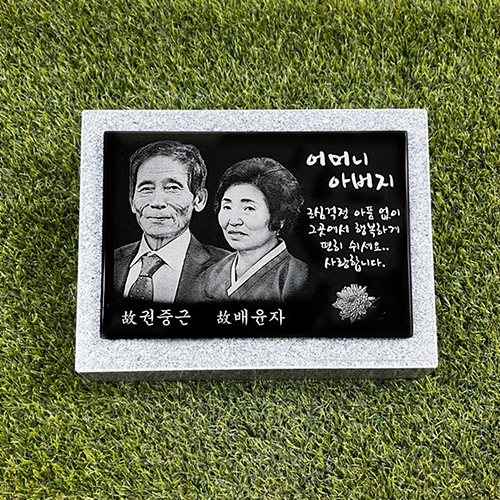 어머니
아버지
근심걱정 아픔 없이
그곳에서 행복하게
편히 쉬세요..
사랑합니다.
故권중근 故배윤자